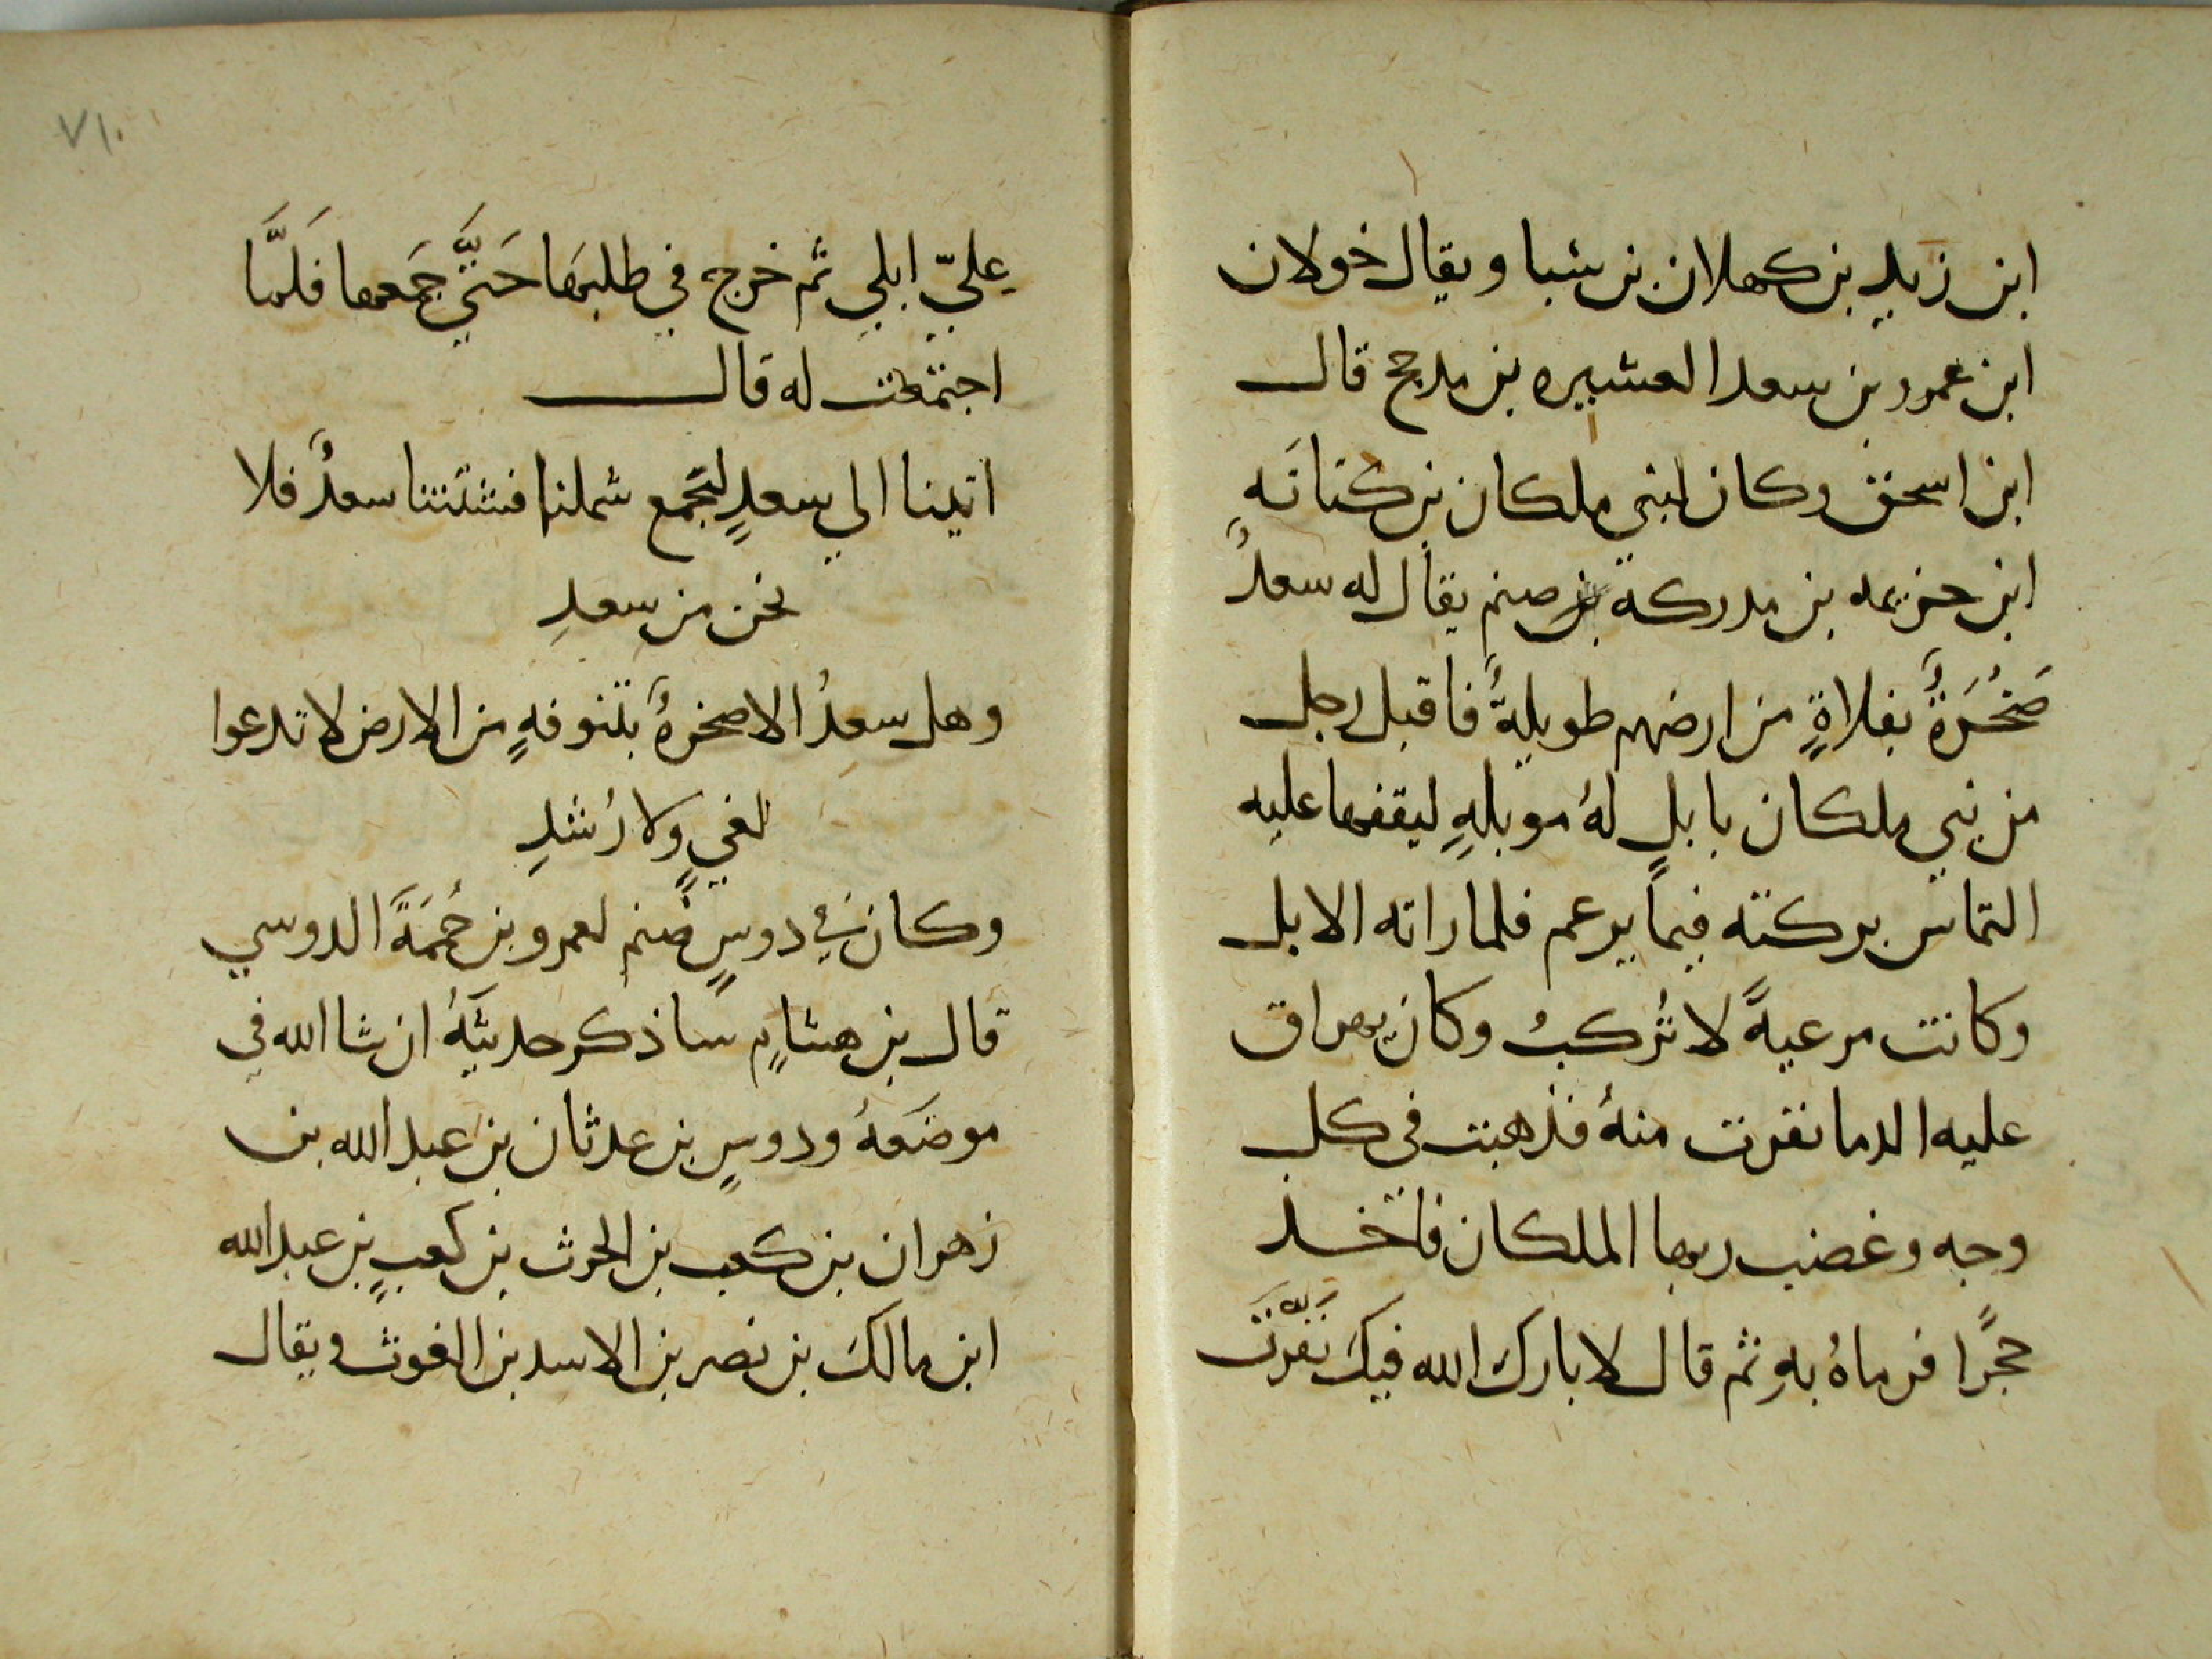 ابن زيد بن كهلان بن سبا ويقال خولان
ابن عمرو بن سعد العشيره بن مدحج قال
ابن اسحق وكان لبني ملكان بن كنانَه
ابن خزيمه بن مدركة بن صنم يقال له سعدُ
صَخْرَةٌ بفلاةٍ من ارضهم طويلةٌ فاقبل رجل
من بني ملكان بابلٍ لهُ موبلهٍ ليقفها عليه
التماس بركته فيما يزعم فلما راته الابل
وكانت مرعيةً لا تُركبُ وكان يهراق
عليه الدما نفرت منهُ فذهبت فى كل
وجه وغضب ربها الملكان فاخذ
حجرًا فرماهُ بهِ ثم قال لا بارك الله فيكَ نفّرتَ
٧١٠
عليّ ابلي ثم خرج في طلبها حَتَّي جمَعها فَلَمَّا
اجتمعت له قال
اتينا الي سعدٍ ليَجمع شملنا فشتتنا سعدٌ فلا
نحن من سعدِ
وهل سعدُ الا صخرةٌ بتنوفهٍ من الارض لا تدعوا
لغيٍ ولا رُشدِ
وكان في دوسٍ صنم لعمرو بن حُمَمَةَ الدوسي
قال بن هشامٍ ساذكر حديثَهُ ان شا الله في
موضعَهُ ودوسٍ بن عدثان بن عبد الله بن
زهران بن كعب بن الحرث بن كعبٍ بن عبد الله
ابن مالكَ بن نصر بن الاسد بن الغوث ويقال